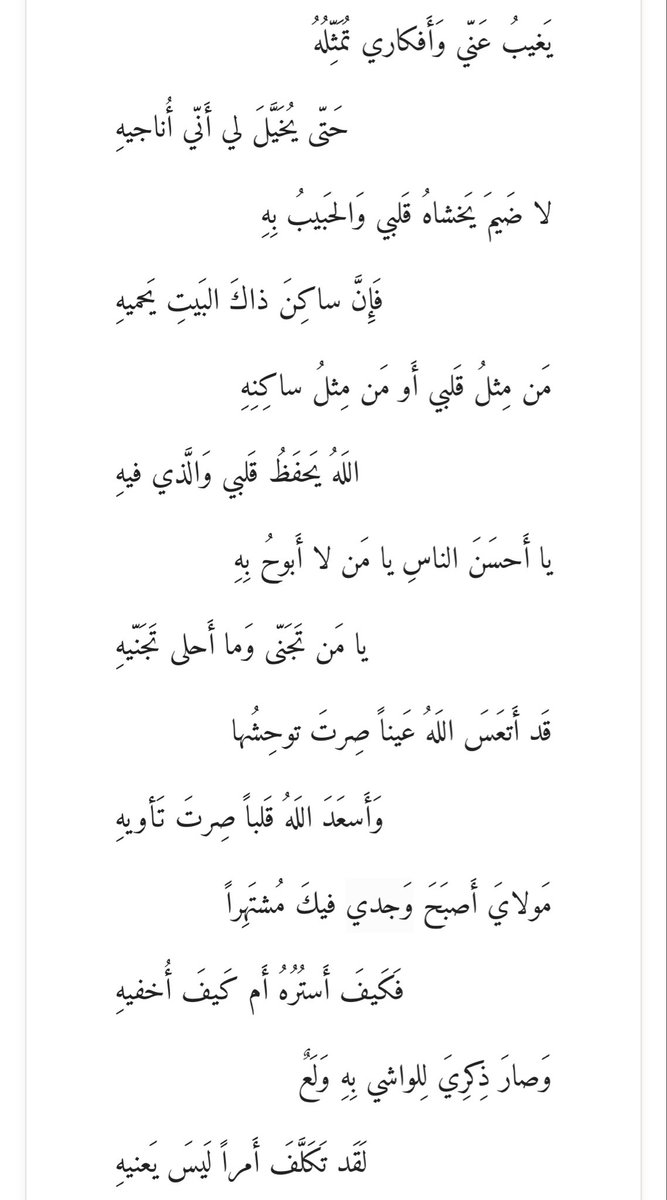 يَغيبُ عَنّي وَأَفكاري تُمَثِّلُهُ
حَتّى يُخَيَّلَ لي أَنّي أُناجيهِ
لا ضَيمَ يَخشاهُ قَلبي وَالحَبيبُ بِهِ
فَإِنَّ ساكِنَ ذاكَ البَيتِ يَحميهِ
مَن مِثلُ قَلبي أَو مَن مِثلُ ساكِنِهِ
اللَهُ يَحفَظُ قَلبي وَالَّذي فيهِ
يا أَحسَنَ الناسِ يا مَن لا أَبوحُ بِهِ
يا مَن تَجَنّى وَما أَحلى تَجَنّيهِ
قَد أَتعَسَ اللَهُ عَيناً صِرتَ توحِشُها
وَأَسعَدَ اللَهُ قَلباً صِرتَ تَأويهِ
مَولايَ أَصبَحَ وَجدي فيكَ مُشتَهِراً
فَكَيفَ أَستُرُهُ أَم كَيفَ أُخفيهِ
وَصارَ ذِكرِيَ لِلواشي بِهِ وَلَعٌ
لَقَد تَكَلَّفَ أَمراً لَيسَ يَعنيهِ